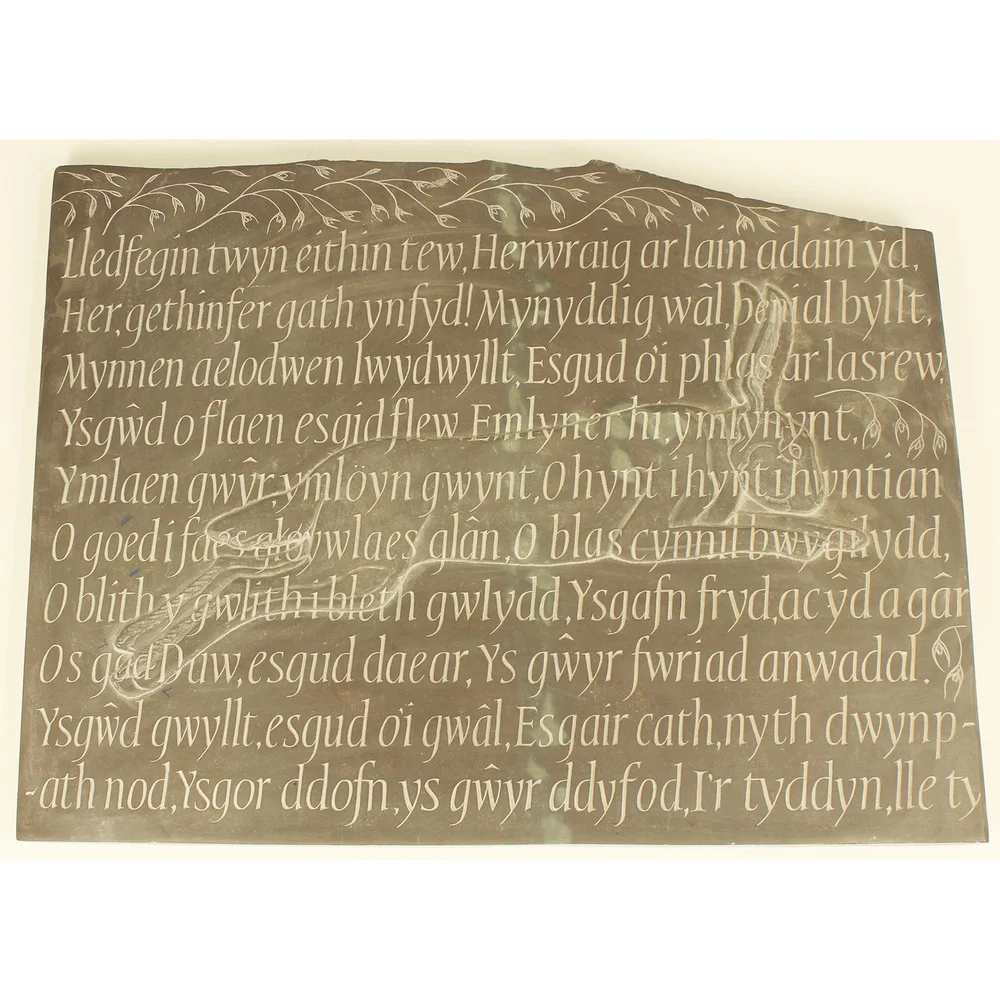 Lledfegin twyn eithin tew, Herwraig ar lain adain ŷd,
Her, gethinfer gath ynfyd! Mynyddig wâl, benial byllt,
Mynnen aelodwen lwydwyllt, Esgud o'i phlas ar lasrew,
Ysgŵd o flaen esgid flew Emlyner hi, ymlynynt,
Ymlaen gwŷr, ymlöyn gwynt, O hynt i hynt i hyntian
O goed i faes gloywlaes glân, O blas cynnil bwygilydd,
O blith y gwlith i bleth gwlydd, Ysgafn fryd, ac ŷd a gâr
Os gad Duw, esgud daear, Ys gŵyr fwriad anwadal.
Ysgŵd gwyllt, esgud o'i gwâl, Esgair cath, nyth dwynp-
-ath nod, Ysgor ddofn, ys gŵyr ddyfod, I'r tyddyn, lle ty